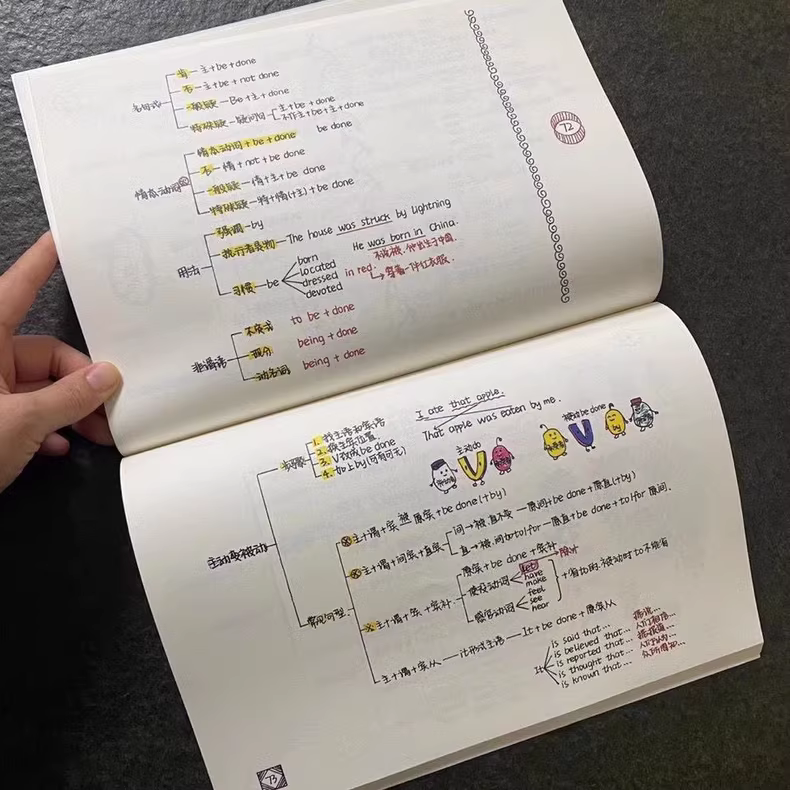 肯—主+be+done
否—主+be+not done
一般疑—Be+主+done
特殊疑—疑问词
主+be+done
不作主+be+主+done
72
情态动词
情态动词+be+done
be done
否—情+not+be done
一般疑—情+主+be done
特殊疑—特+情(+主)+be done
用法
强调—by
执行者是物—The house was struck by lightning
He was born in China.
不说被.他出生于中国.
习惯—be
born
located
dressed in red.
穿着一件红衣服.
devoted
非谓语
不定式 to be + done
现分 being + done
动名词 being + done
I ate that apple.
That apple was eaten by me.
步骤
1. 找主语和宾语
2. 换主宾位置
3. V改成be done
4. 加上by(可有可无)
主动do
V
被动be done
by
V
主动变被动
常见句型
主+谓+宾 被 原宾+be done(+by)
主+谓+间宾+直宾
间→被.直不变—原间+be done+原直(+by)
直→被.间加to/for—原直+be done+to/for原间.
主+谓+宾+宾补
原宾+be done+宾补
使役动词
let
have
make
感官动词
feel
see
hear
+省to的.被动时to不能省
主+谓+宾从—it形式主语—It+be done+原宾从
It
is said that... 据说...
is believed that... 人们相信...
is reported that... 据报道...
is thought that... 人们认为...
is known that... 众所周知...
73